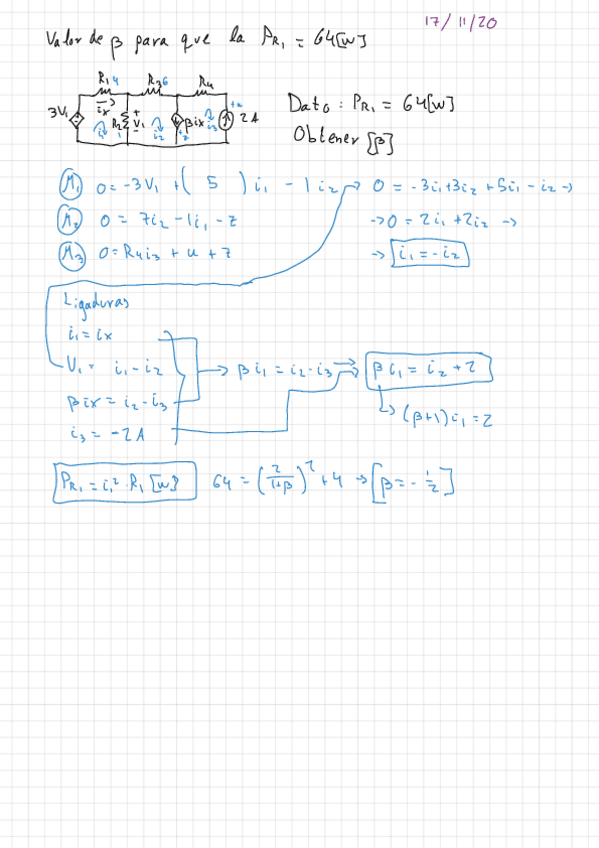 17/11/20
Valor de β para que la PR₁ = 64[w]
R₁4 R₃6 R₄
3V₁ ix R₂ 1 + V₁ - βix +u 2A
i₁ i₂ +z i₃
Dato : PR₁ = 64[w]
Obtener [β]
M₁ 0 = -3V₁ + ( 5 ) i₁ - 1 i₂ → 0 = -3i₁+3i₂ +5i₁ - i₂ →
M₂ 0 = 7i₂ - 1i₁ - z → 0 = 2i₁ +2i₂ →
M₃ 0 = R₄i₃ + u + z → i₁ = -i₂
Ligaduras
i₁ = ix
V₁ = i₁ - i₂ → β i₁ = i₂ - i₃ → β i₁ = i₂ + 2
βix = i₂ - i₃ → (β+1) i₁ = 2
i₃ = -2A
PR₁ = i₁² · R₁ [w] 64 = (2/1+β)² + 4 → [β = - 1/2]